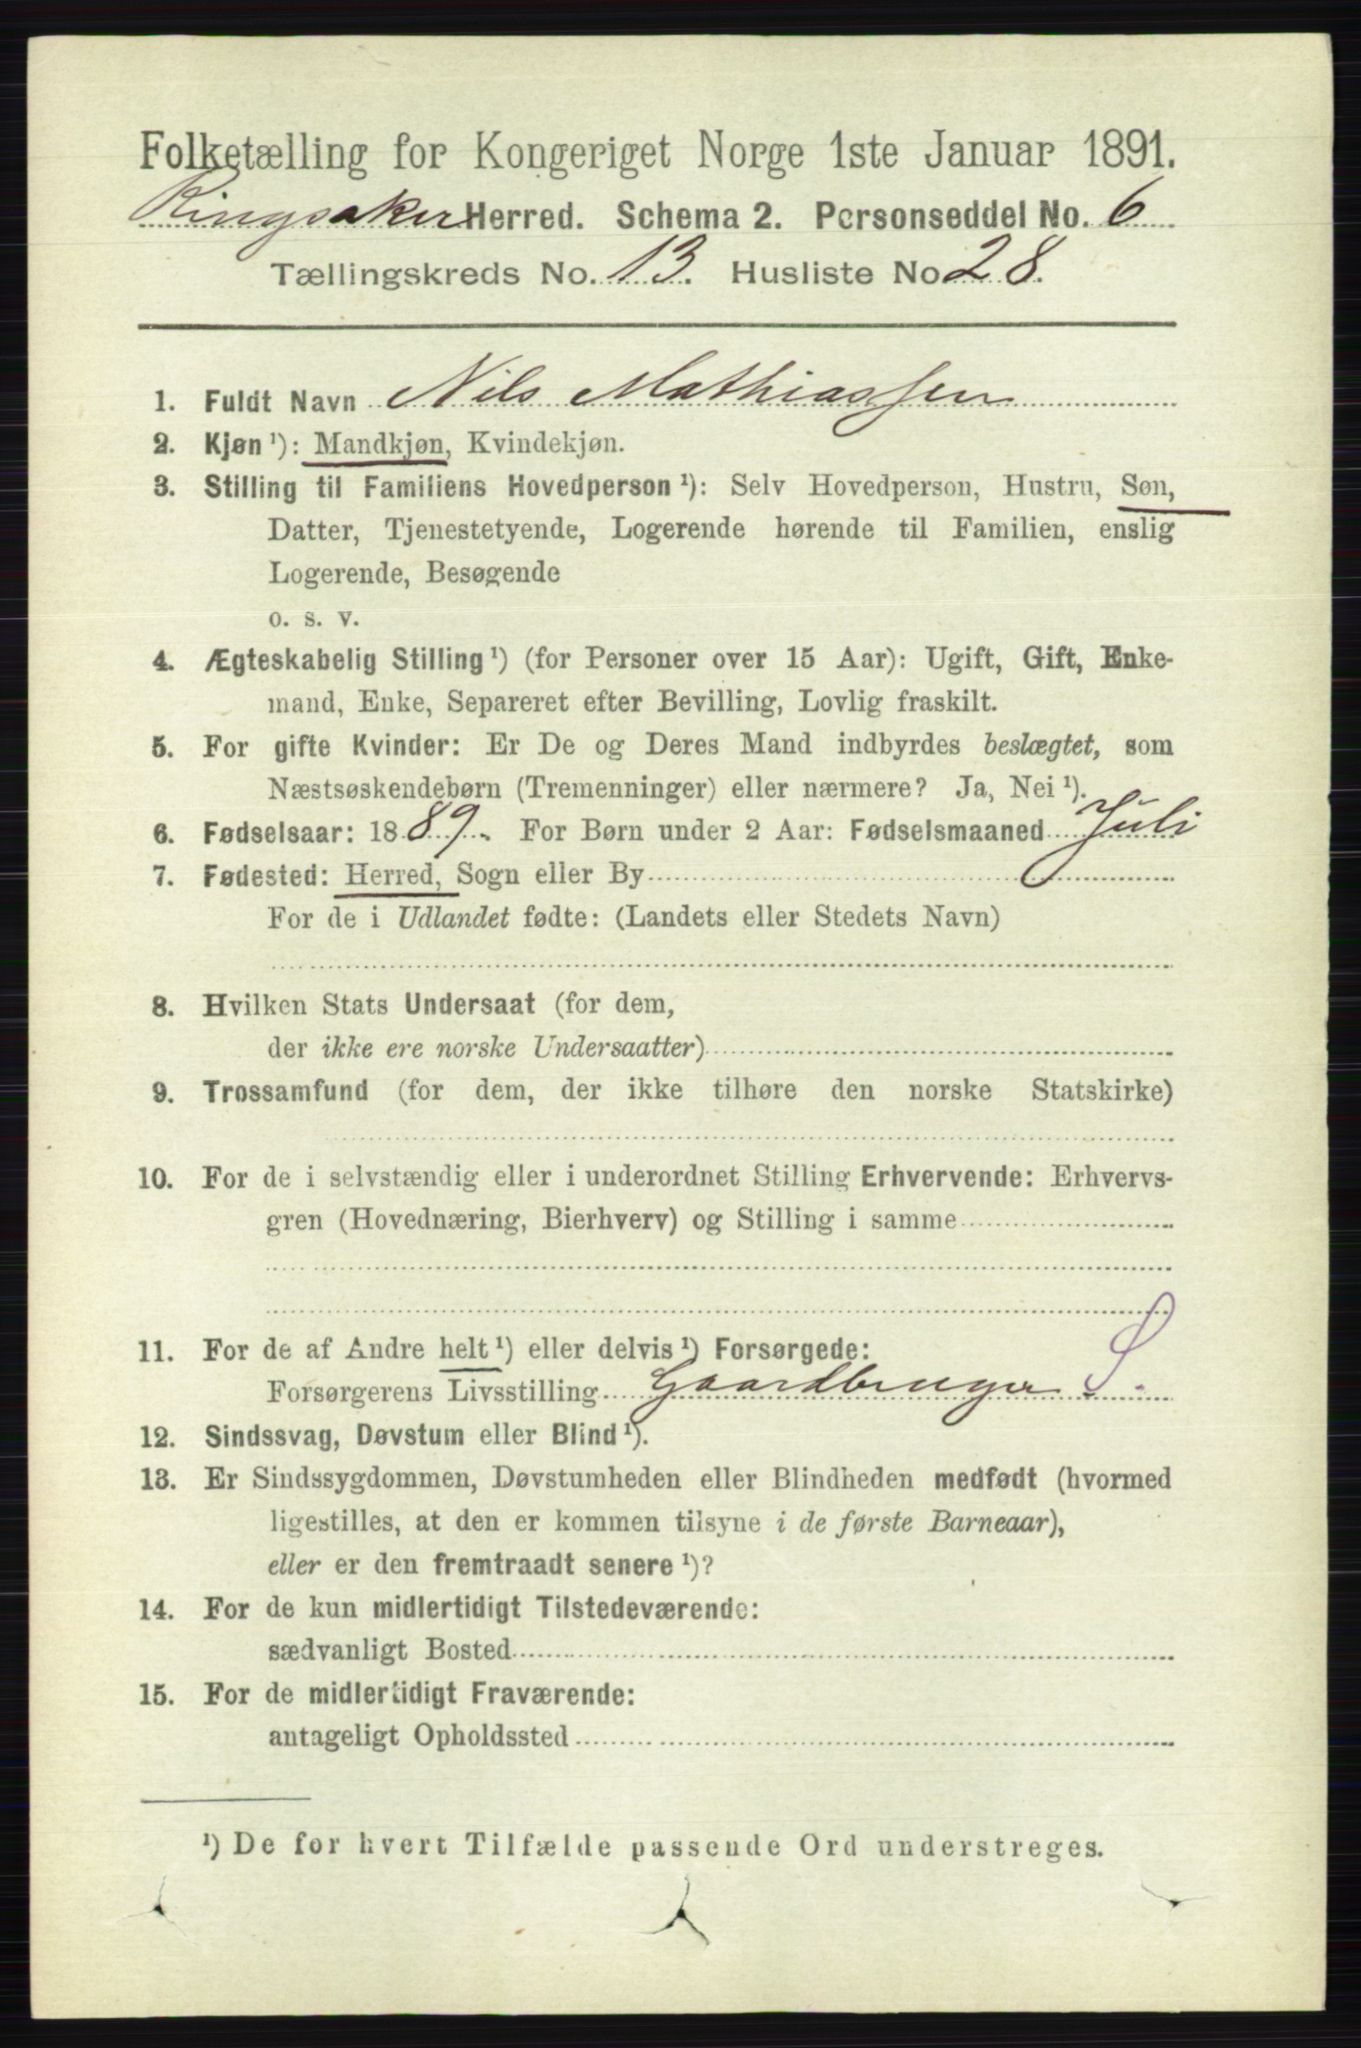 Folketælling for Kongeriget Norge 1ste Januar 1891.
Ringsaker Herred. Schema 2. Personseddel No. 6
Tællingskreds No. 13. Husliste No 28.
1. Fuldt Navn Nils Mathiassen
2. Kjøn ¹): Mandkjøn, Kvindekjøn.
3. Stilling til Familiens Hovedperson ¹): Selv Hovedperson, Hustru, Søn,
Datter, Tjenestetyende, Logerende hørende til Familien, enslig
Logerende, Besøgende
o. s. v.
4. Ægteskabelig Stilling ¹) (for Personer over 15 Aar): Ugift, Gift, Enke-
mand, Enke, Separeret efter Bevilling, Lovlig fraskilt.
5. For gifte Kvinder: Er De og Deres Mand indbyrdes beslægtet, som
Næstsøskendebørn (Tremenninger) eller nærmere? Ja, Nei ¹).
6. Fødselsaar: 1889. For Børn under 2 Aar: Fødselsmaaned Juli
7. Fødested: Herred, Sogn eller By
For de i Udlandet fødte: (Landets eller Stedets Navn)
8. Hvilken Stats Undersaat (for dem,
der ikke ere norske Undersaatter)
9. Trossamfund (for dem, der ikke tilhøre den norske Statskirke)
10. For de i selvstændig eller i underordnet Stilling Erhvervende: Erhvervs-
gren (Hovednæring, Bierhverv) og Stilling i samme
11. For de af Andre helt ¹) eller delvis ¹) Forsørgede:
Forsørgerens Livsstilling Gaardbruger S.
12. Sindssvag, Døvstum eller Blind ¹).
13. Er Sindssygdommen, Døvstumheden eller Blindheden medfødt (hvormed
ligestilles, at den er kommen tilsyne i de første Barneaar),
eller er den fremtraadt senere ¹)?
14. For de kun midlertidigt Tilstedeværende:
sædvanligt Bosted
15. For de midlertidigt Fraværende:
antageligt Opholdssted
¹) De for hvert Tilfælde passende Ord understreges.